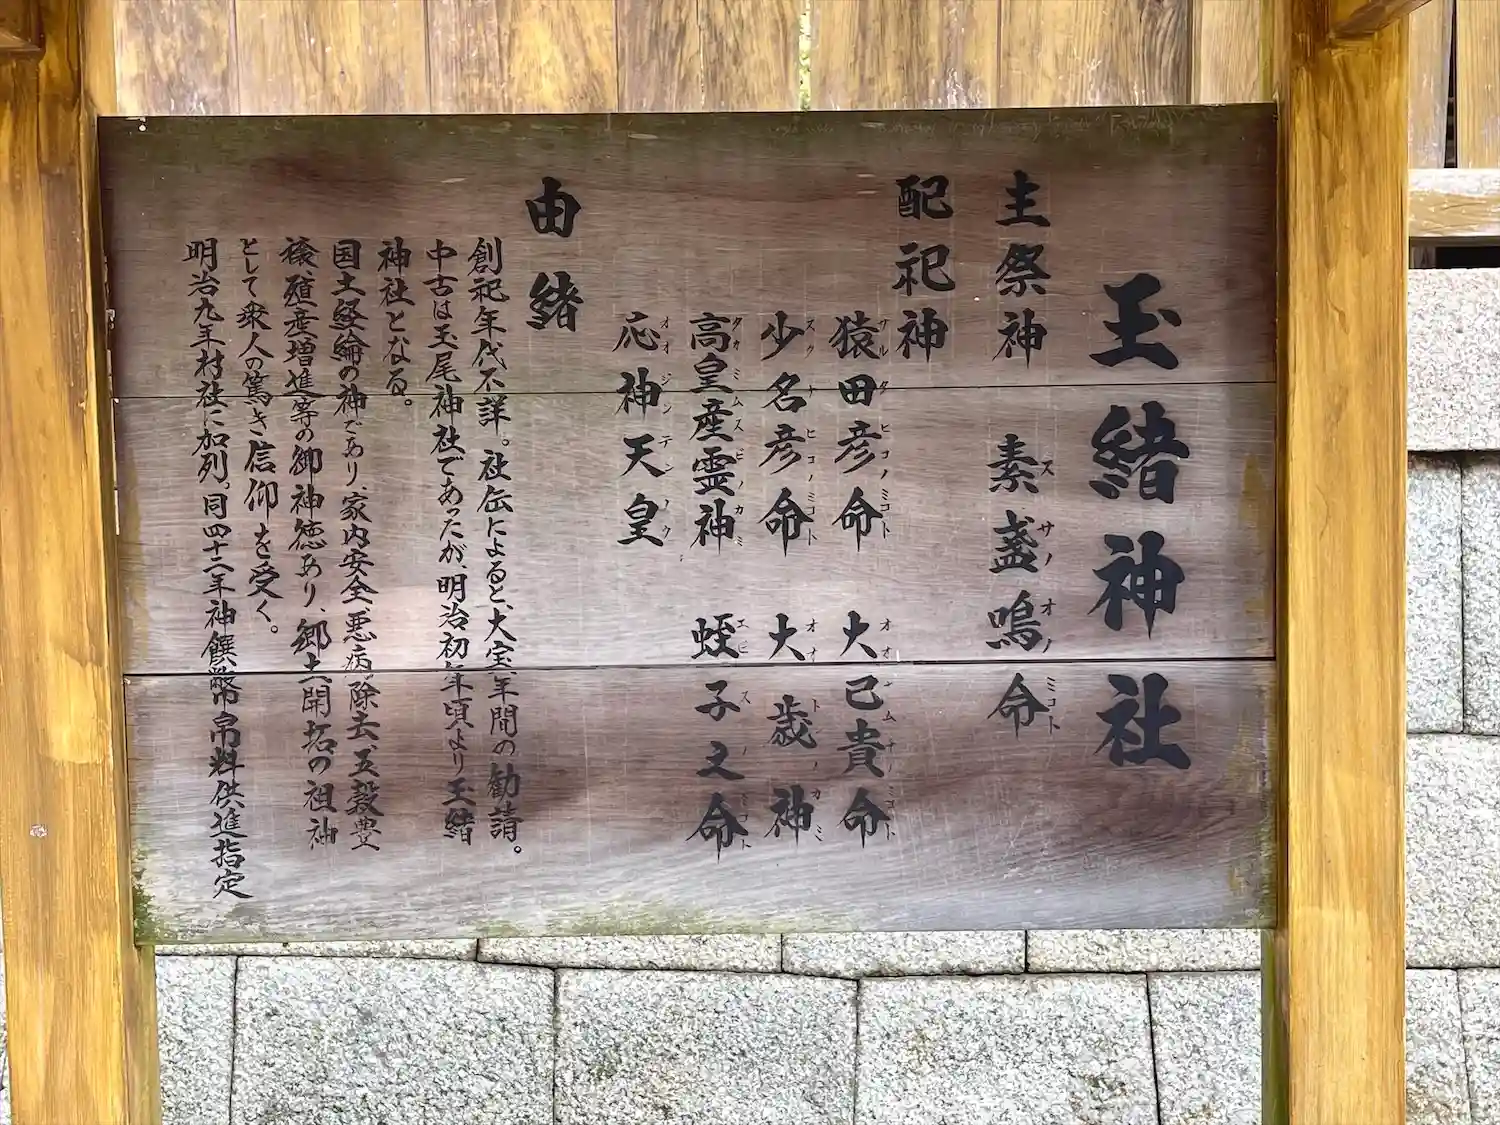 玉緒神社
主祭神
素盞嗚命
スサノオノミコト
配祀神
猿田彦命 大己貴命
サルタヒコノミコト オオナムナノミコト
少名彦命 大歳神
スクナヒコノミコト オオトノカミ
高皇産霊神 蛭子之命
タカミムスビノカミ エビスノミコト
応神天皇
オオジンテンノウ
由緒
創祀年代不詳。社伝によると、大宝年間の勧請。
中古は玉尾神社であったが、明治初年頃より玉緒
神社となる。
国土経綸の神であり、家内安全、悪病除去、五穀豊
穣、殖産増進等の御神徳あり、郷土開拓の祖神
として衆人の篤き信仰を受く。
明治九年村社に加列。同四十二年神饌幣帛料供進指定